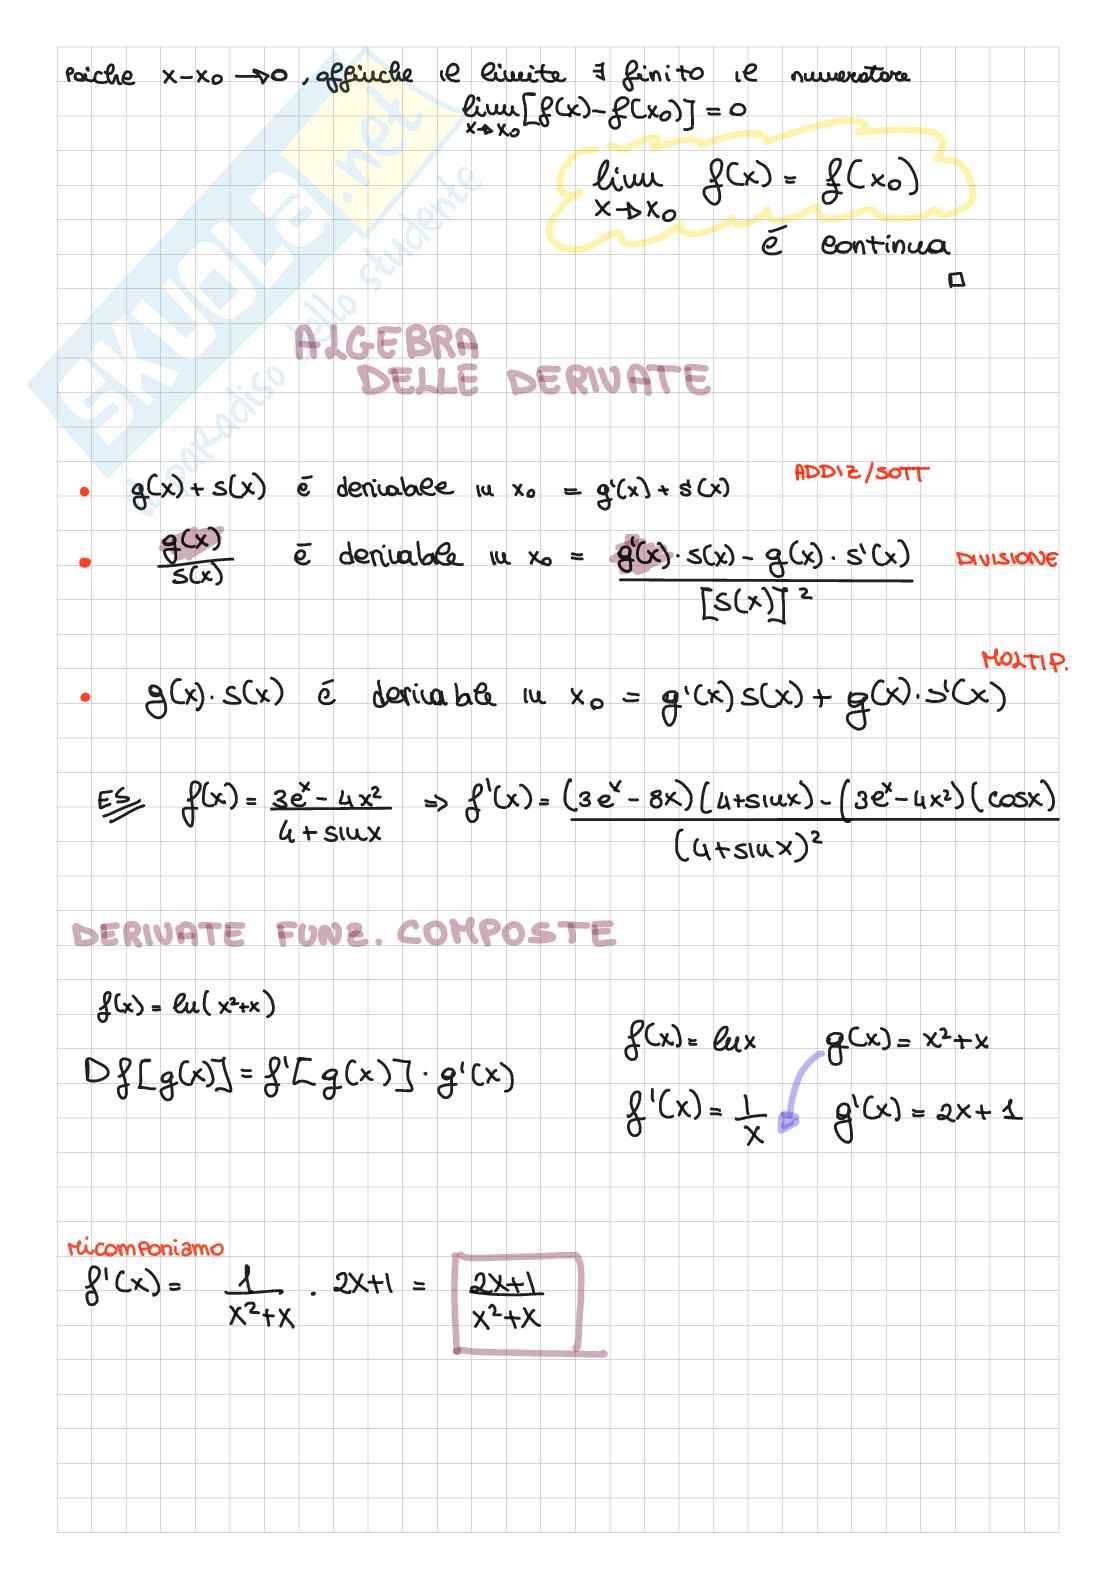 poiche x-x₀ → 0, affinche il limite ∃ finito il numeratore
lim [f(x)-f(x₀)] = 0
x→x₀
lim f(x) = f(x₀)
x→x₀
é continua
□
SKUOLA.net
il paradiso dello studente
ALGEBRA
DELLE DERIVATE
ADDIZ/SOTT
• g(x) + s(x) é derivabile in x₀ = g'(x) + s'(x)
• g(x)/s(x) é derivabile in x₀ = (g'(x) · s(x) - g(x) · s'(x))/[s(x)]² DIVISIONE
MOLTIP.
• g(x) · s(x) é derivabile in x₀ = g'(x) s(x) + g(x) · s'(x)
ES f(x) = (3eˣ - 4x²)/(4 + sinx) ⇒ f'(x) = ((3eˣ - 8x)(4+sinx) - (3eˣ - 4x²)(cosx))/(4+sinx)²
DERIVATE FUNZ. COMPOSTE
f(x) = ln(x²+x)
f(x) = lnx g(x) = x²+x
D f[g(x)] = f'[g(x)] · g'(x)
f'(x) = 1/x g'(x) = 2x+1
ricomponiamo
f'(x) = 1/(x²+x) · 2x+1 = (2x+1)/(x²+x)